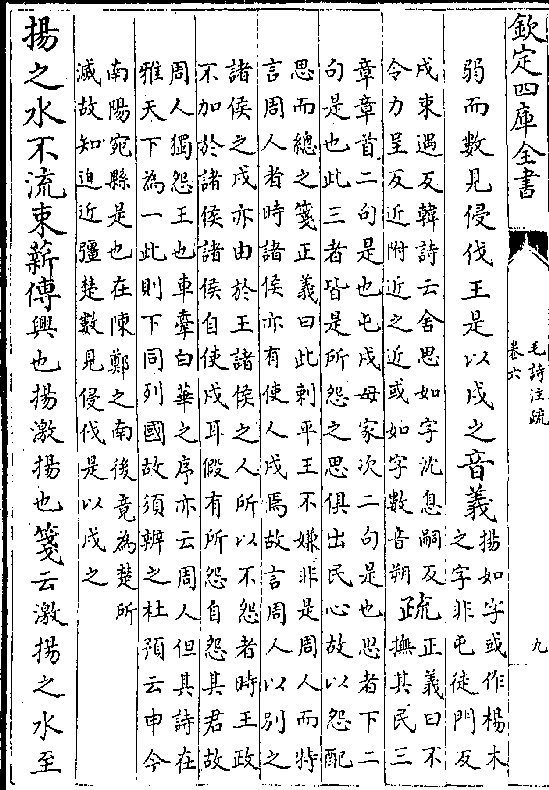 欽定四庫全書
毛詩注疏
卷六
九
弱而數見侵伐王是以戍之音義揚如字或作楊木
之字非屯徒門反
戍束遇反韓詩云舍思如字沈息嗣反
令力呈反近附近之近或如字數音朔
疏正義曰不
撫其民三
章章首二句是也屯戍母家次二句是也思者下二
句是也此三者皆是所怨之思俱出民心故以怨配
思而總之箋正義曰此刺平王不嫌非是周人而特
言周人者時諸侯亦有使人戍焉故言周人以別之
諸侯之戍亦由於王諸侯之人所以不怨者時王政
不加於諸侯諸侯自使戍耳假有所怨自怨其君故
周人獨怨王也車舝白華之序亦云周人但其詩在
雅天下為一此則下同列國故須辨之杜預云申今
南陽宛縣是也在陳鄭之南後竟為楚所
滅故知迫近彊楚數見侵伐是以戍之
揚之水不流束薪傳興也揚激揚也箋云激揚之水至